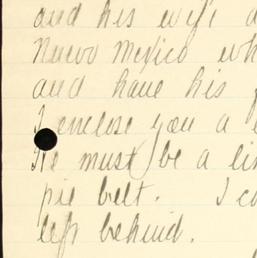 and his wife a
Nuevo Mexico wh
and have his
I enclose you a
He must be a lin
pie belt. I co
left behind.